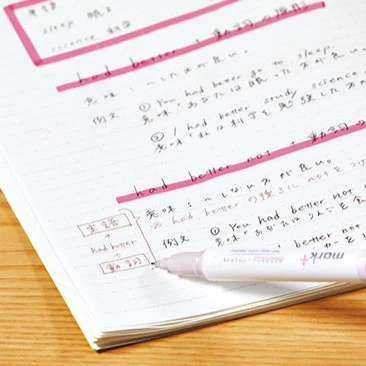 sleep 眠る
science 科学
had better : 動詞の原形
意味 : ～した方が良い。
例文 ① You had better go to sleep.
意味 : あなたは眠った方が良い
② I had better study science
意味 : 私は科学を勉強した方が
had better not : 動詞の
意味 : ～しない方が良い。
※ had better の後ろに not をつけ
例文 ① You had better not
意味 : あなたは
better not
主語
+
had better
+
動詞
mark+